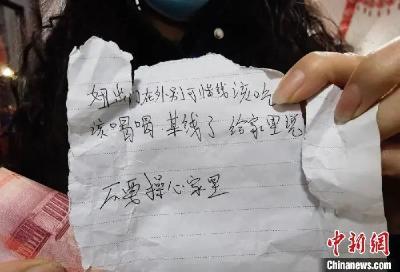 妞出门在外别可惜钱该吃
该喝喝.某钱了给家里说
不要操心家里
中新网
Chinanews.com